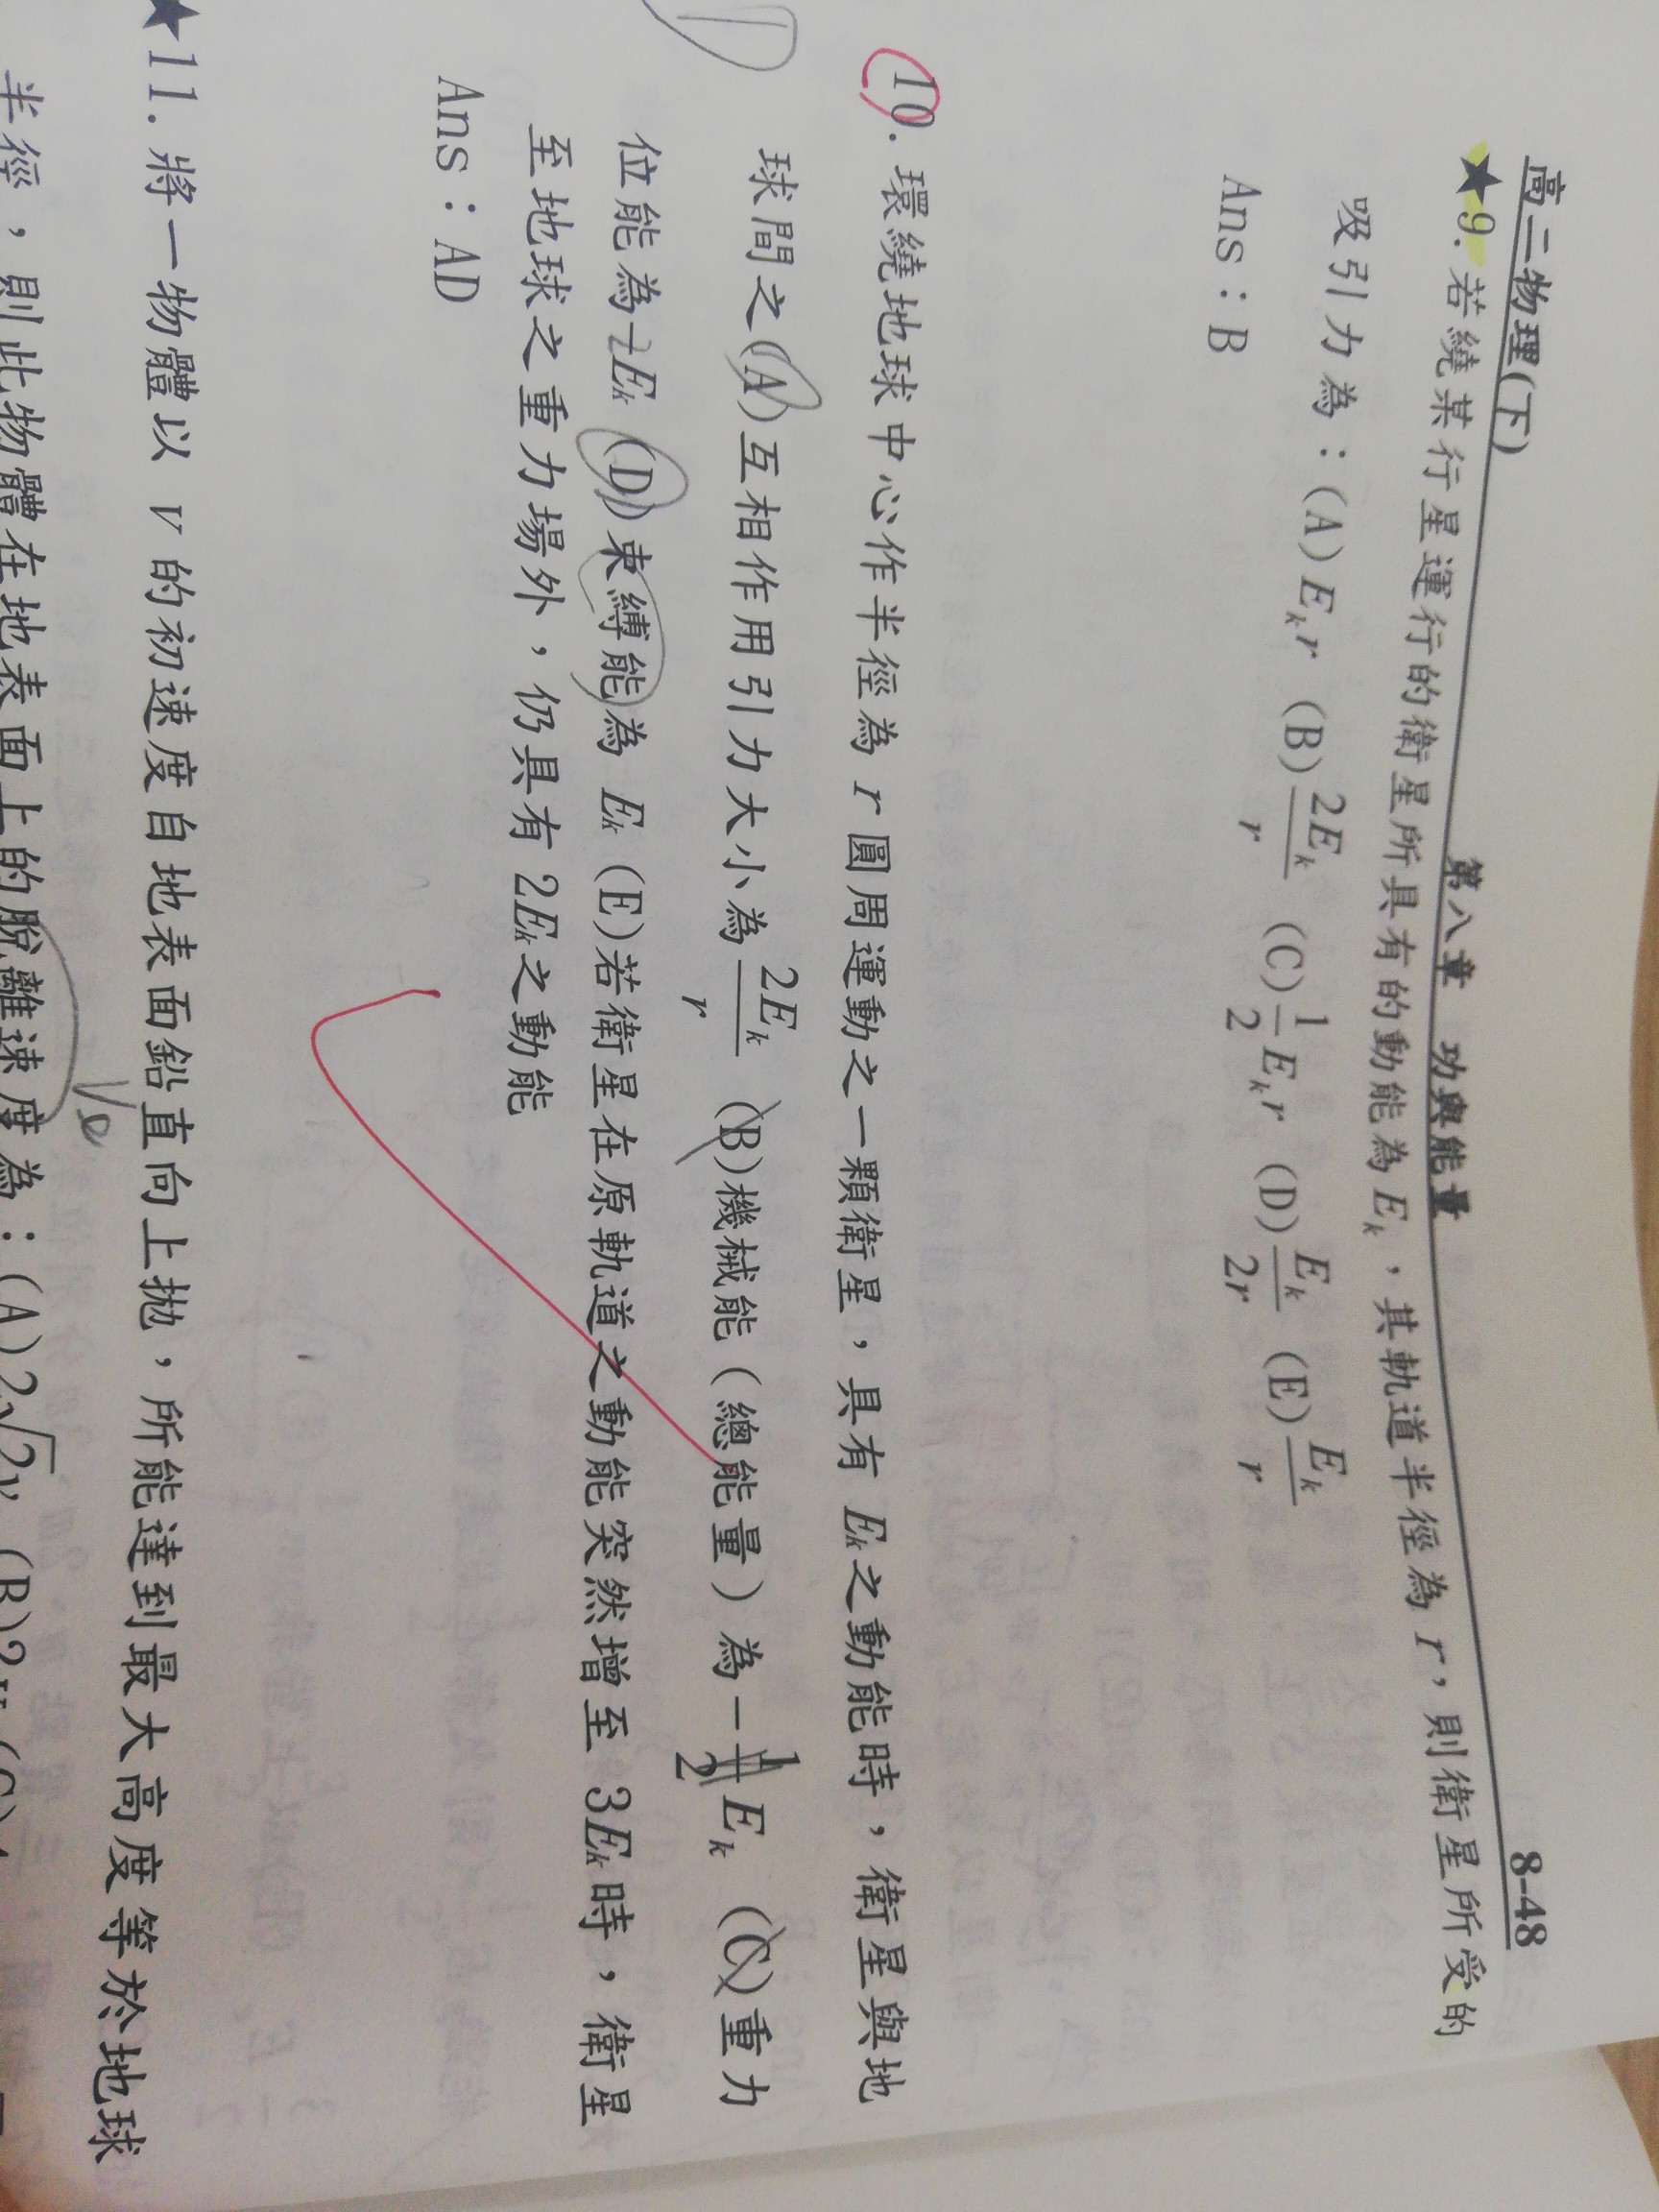 高二物理(下) 第八章 功與能量 8-48
★9. 若繞某行星運行的衛星所具有的動能為 E_k，其軌道半徑為 r，則衛星所受的
吸引力為：(A) E_k r (B) 2E_k/r (C) 1/2 E_k r (D) E_k/2r (E) E_k/r
Ans：B
10. 環繞地球中心作半徑為 r 圓周運動之一顆衛星，具有 E_k 之動能時，衛星與地
球間之(A)互相作用引力大小為 2E_k/r (B)機械能（總能量）為 -1/2 E_k (C)重力
位能為 -2E_k (D)束縛能為 E_k (E)若衛星在原軌道之動能突然增至 3E_k 時，衛星
至地球之重力場外，仍具有 2E_k 之動能
Ans：AD
★11. 將一物體以 v 的初速度自地表面鉛直向上拋，所能達到最大高度等於地球
Ve
半徑，則此物體在地表面上的脫離速度為：(A) 2√2v (B) 2v (C)